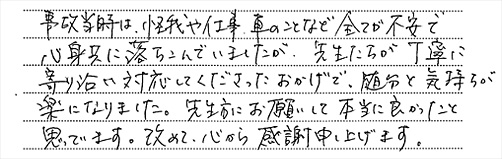 事故当時は、怪我や仕事、車のことなど全てが不安で
心身共に落ちこんでいましたが、先生たちが丁寧に
寄り沿い対応してくださったおかげで、随分と気持ちが
楽になりました。先生方にお願いして本当に良かったと
思っています。改めて、心から感謝申し上げます。